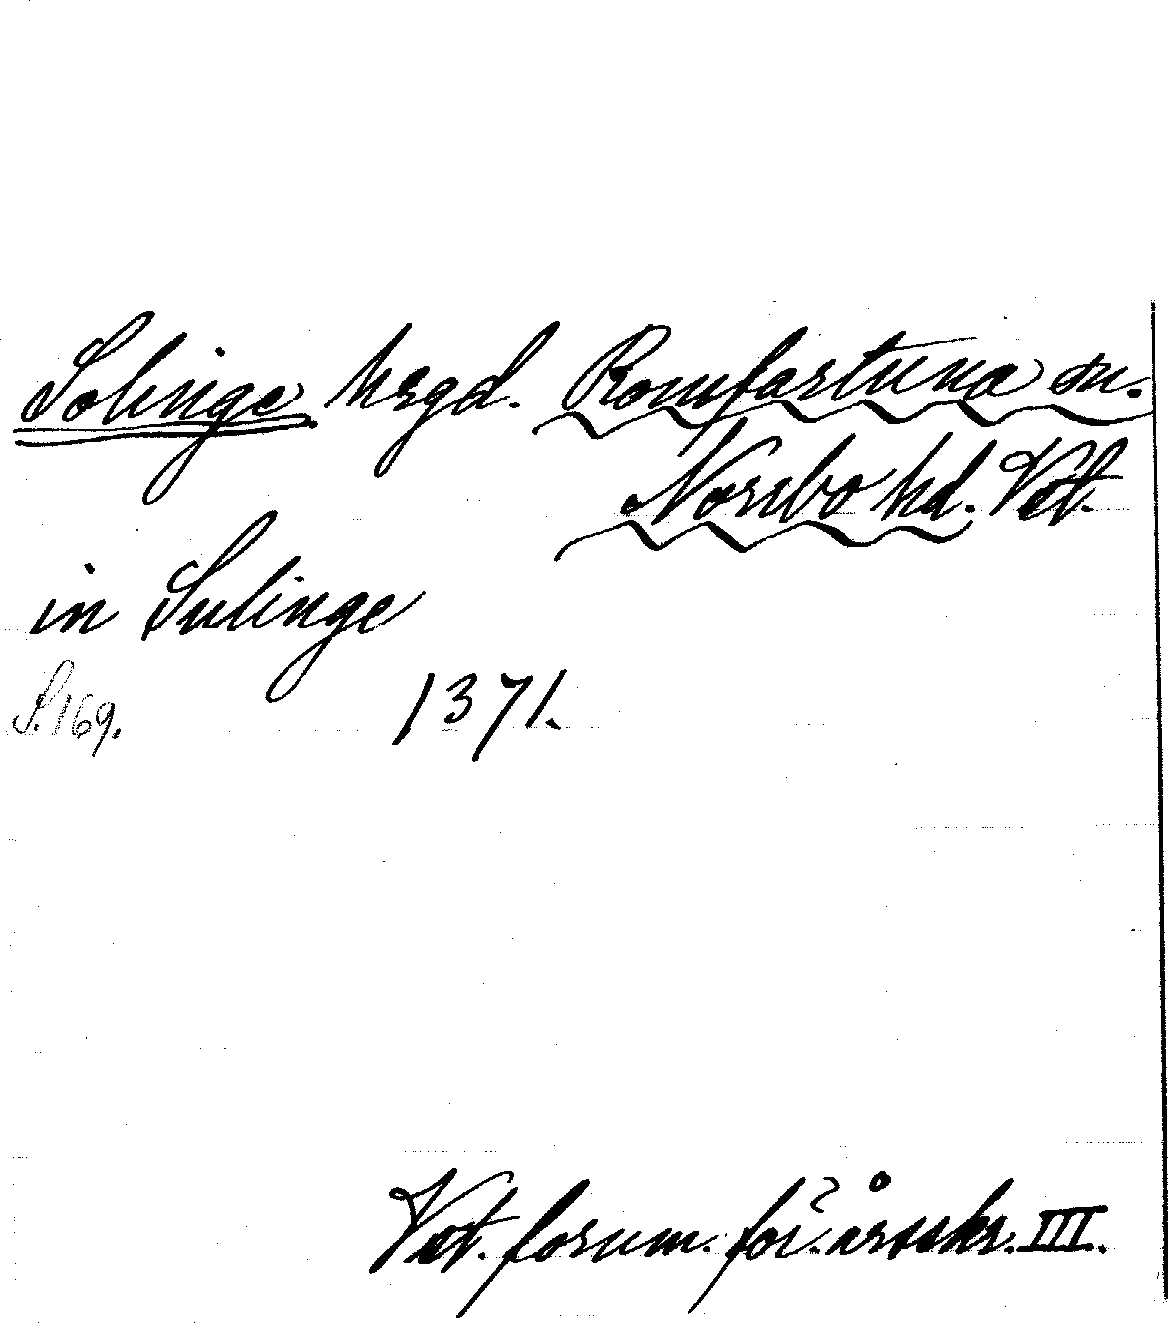 Solinge hrgd. Romfartuna sn.
Norrbo hd. Vst.
in Sulinge
S. 169. 1371.
Vst. fornm. för. årsskr. III.